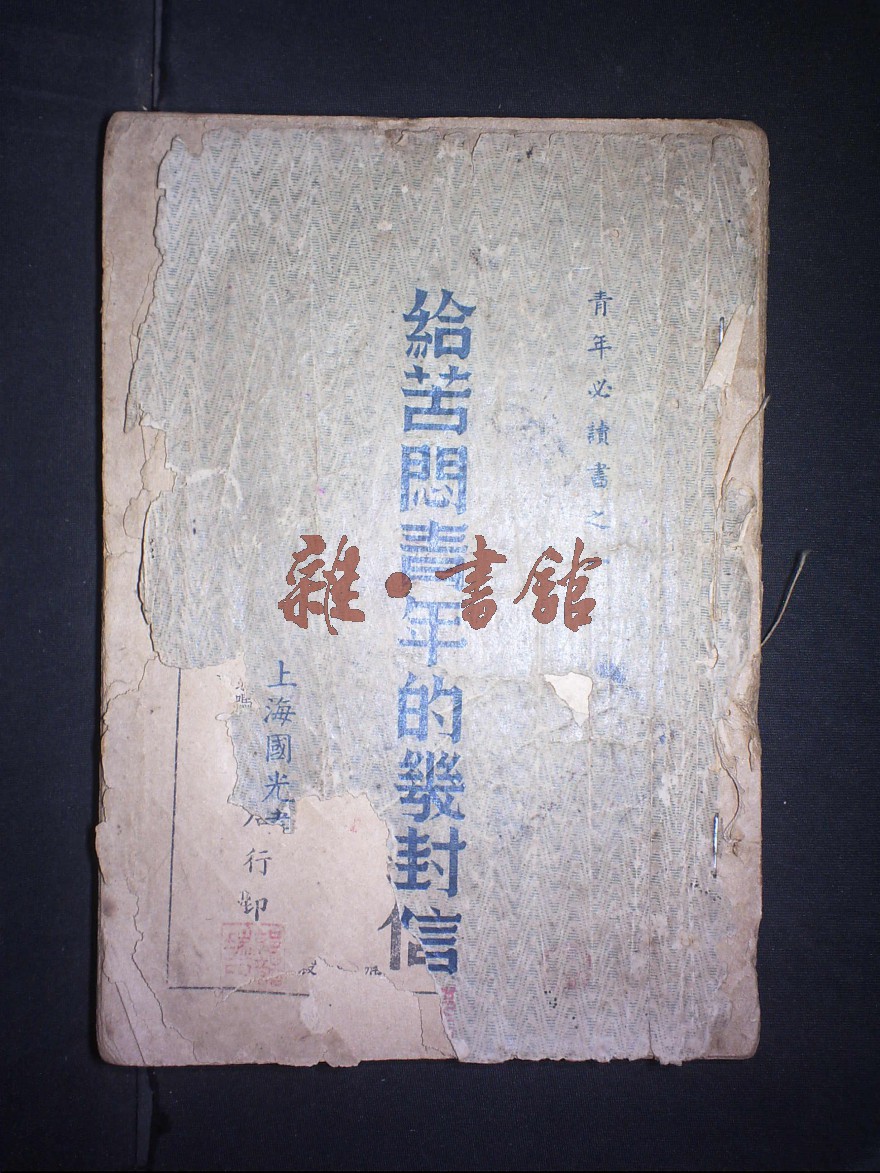 青年必讀書之一
給苦悶青年的幾封信
上海國光書
行印
雜·書館